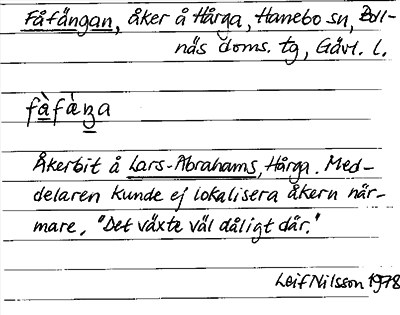 Fåfängan, åker å Hårga, Hanebo sn, Boll-
näs doms. tg, Gävl. l.
fàfàŋa
Åkerbit å Lars-Abrahams, Hårga. Med-
delaren kunde ej lokalisera åkern när-
mare. "Det växte väl dåligt där."
Leif Nilsson 1978